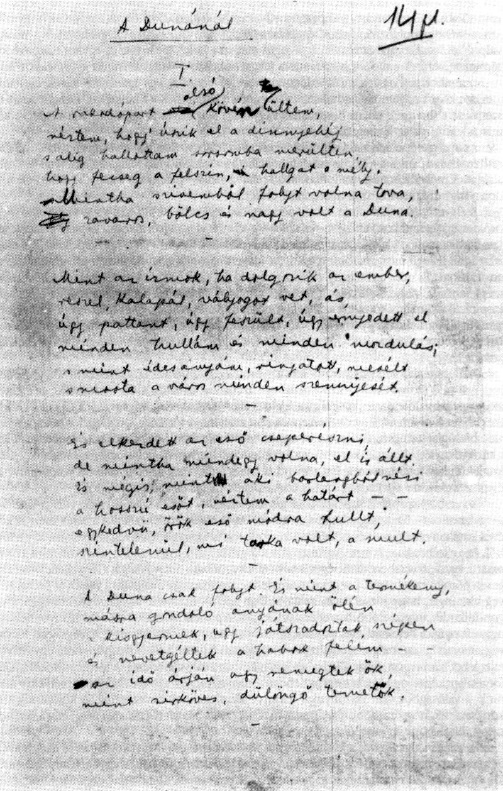 A Dunánál
14 fl.
I
A rakodópart alsó kövén ültem,
néztem, hogy úszik el a dinnyehéj
s alig hallottam sorsomba merülten,
hogy fecseg a felszin, hallgat a mély.
Mintha szivemből folyt volna tova,
zavaros, bölcs és nagy volt a Duna.
Mint az izmok, ha dolgozik az ember,
reszel, kalapál, vályogot vet, ás,
úgy pattant, úgy feszült, úgy ernyedett el
minden hullám és minden mozdulás;
s mint édesanyám, ringatott, mesélt
s mosta a város minden szennyesét.
És elkezdett az eső cseperészni,
de mintha mindegy volna, el is állt.
És mégis, mint aki barlangból nézi
a hosszú esőt, néztem a határt – –
egykedvü, örök eső módra hullt,
szintelenül, mi tarka volt, a mult.
A Duna csak folyt. És mint a termékeny,
másra gondoló anyának ölén
a kisgyermek, ugy játszadoztak szépen
és nevetgéltek a habok felém – –
az idő árján ugy remegtek ők,
mint sirköves, dülöngő temetők.